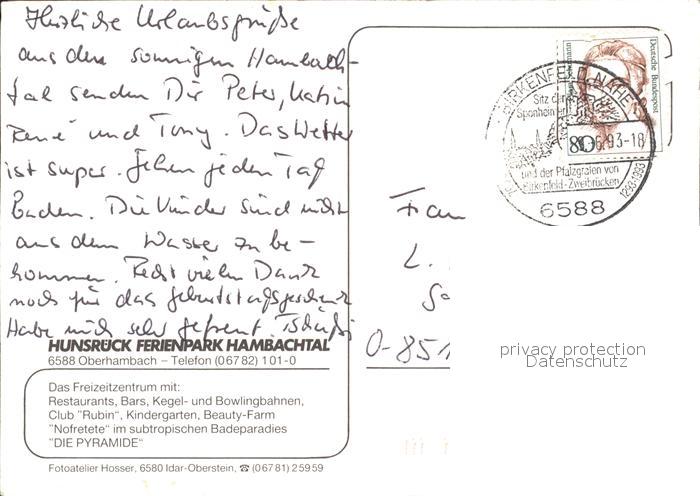 Herzliche Urlaubsgrüße
aus dem sonnigen Hambach-
tal senden Dir Peter, Katrin
René und Tony. Das Wetter
ist super. Gehen jeden Tag
baden. Die Kinder sind nicht
aus dem Wasser zu be-
kommen. Recht vielen Dank
noch für das Geburtstagsgeschenk
Habe mich sehr gefreut. Tschüßi
HUNSRÜCK FERIENPARK HAMBACHTAL
6588 Oberhambach – Telefon (06782) 101-0
Das Freizeitzentrum mit:
Restaurants, Bars, Kegel- und Bowlingbahnen,
Club "Rubin", Kindergarten, Beauty-Farm
"Nofretete" im subtropischen Badeparadies
"DIE PYRAMIDE"
Fotoatelier Hosser, 6580 Idar-Oberstein, ☎ (06781) 25959
Deutsche Bundespost
80
BIRKENFELD, NAHE
Sitz der
Sponheimer
6.93-18
und der Pfalzgrafen von
Birkenfeld-Zweibrücken
1293-1993
6588
Frau
L.
O-851
privacy protection
Datenschutz